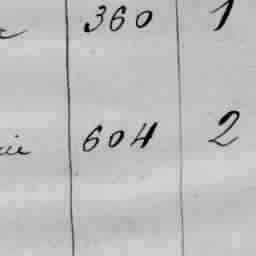 360 1
604 2